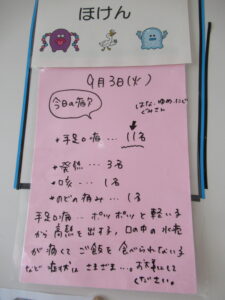 ほけん
9月3日(火)
今日の病気
(はな、ゆめ、にじ
ぐみさん
手足口病… 11名
発熱… 3名
咳… 1名
のどの痛み… 1名
手足口病… ポツポツと軽い子
から高熱を出す子、口の中の水疱
が痛くてご飯を食べられない子
など症状はさまざま…。お大事にして
ください。